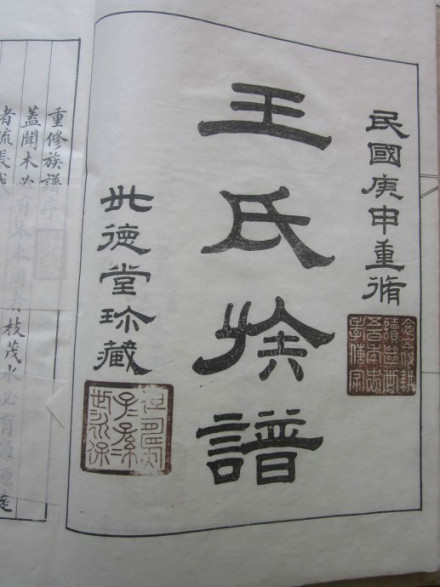 民國庚申重脩
王氏族譜
世德堂珎藏
重修族譜序
蓋聞木必有
枝茂水必有源源遠
者流長